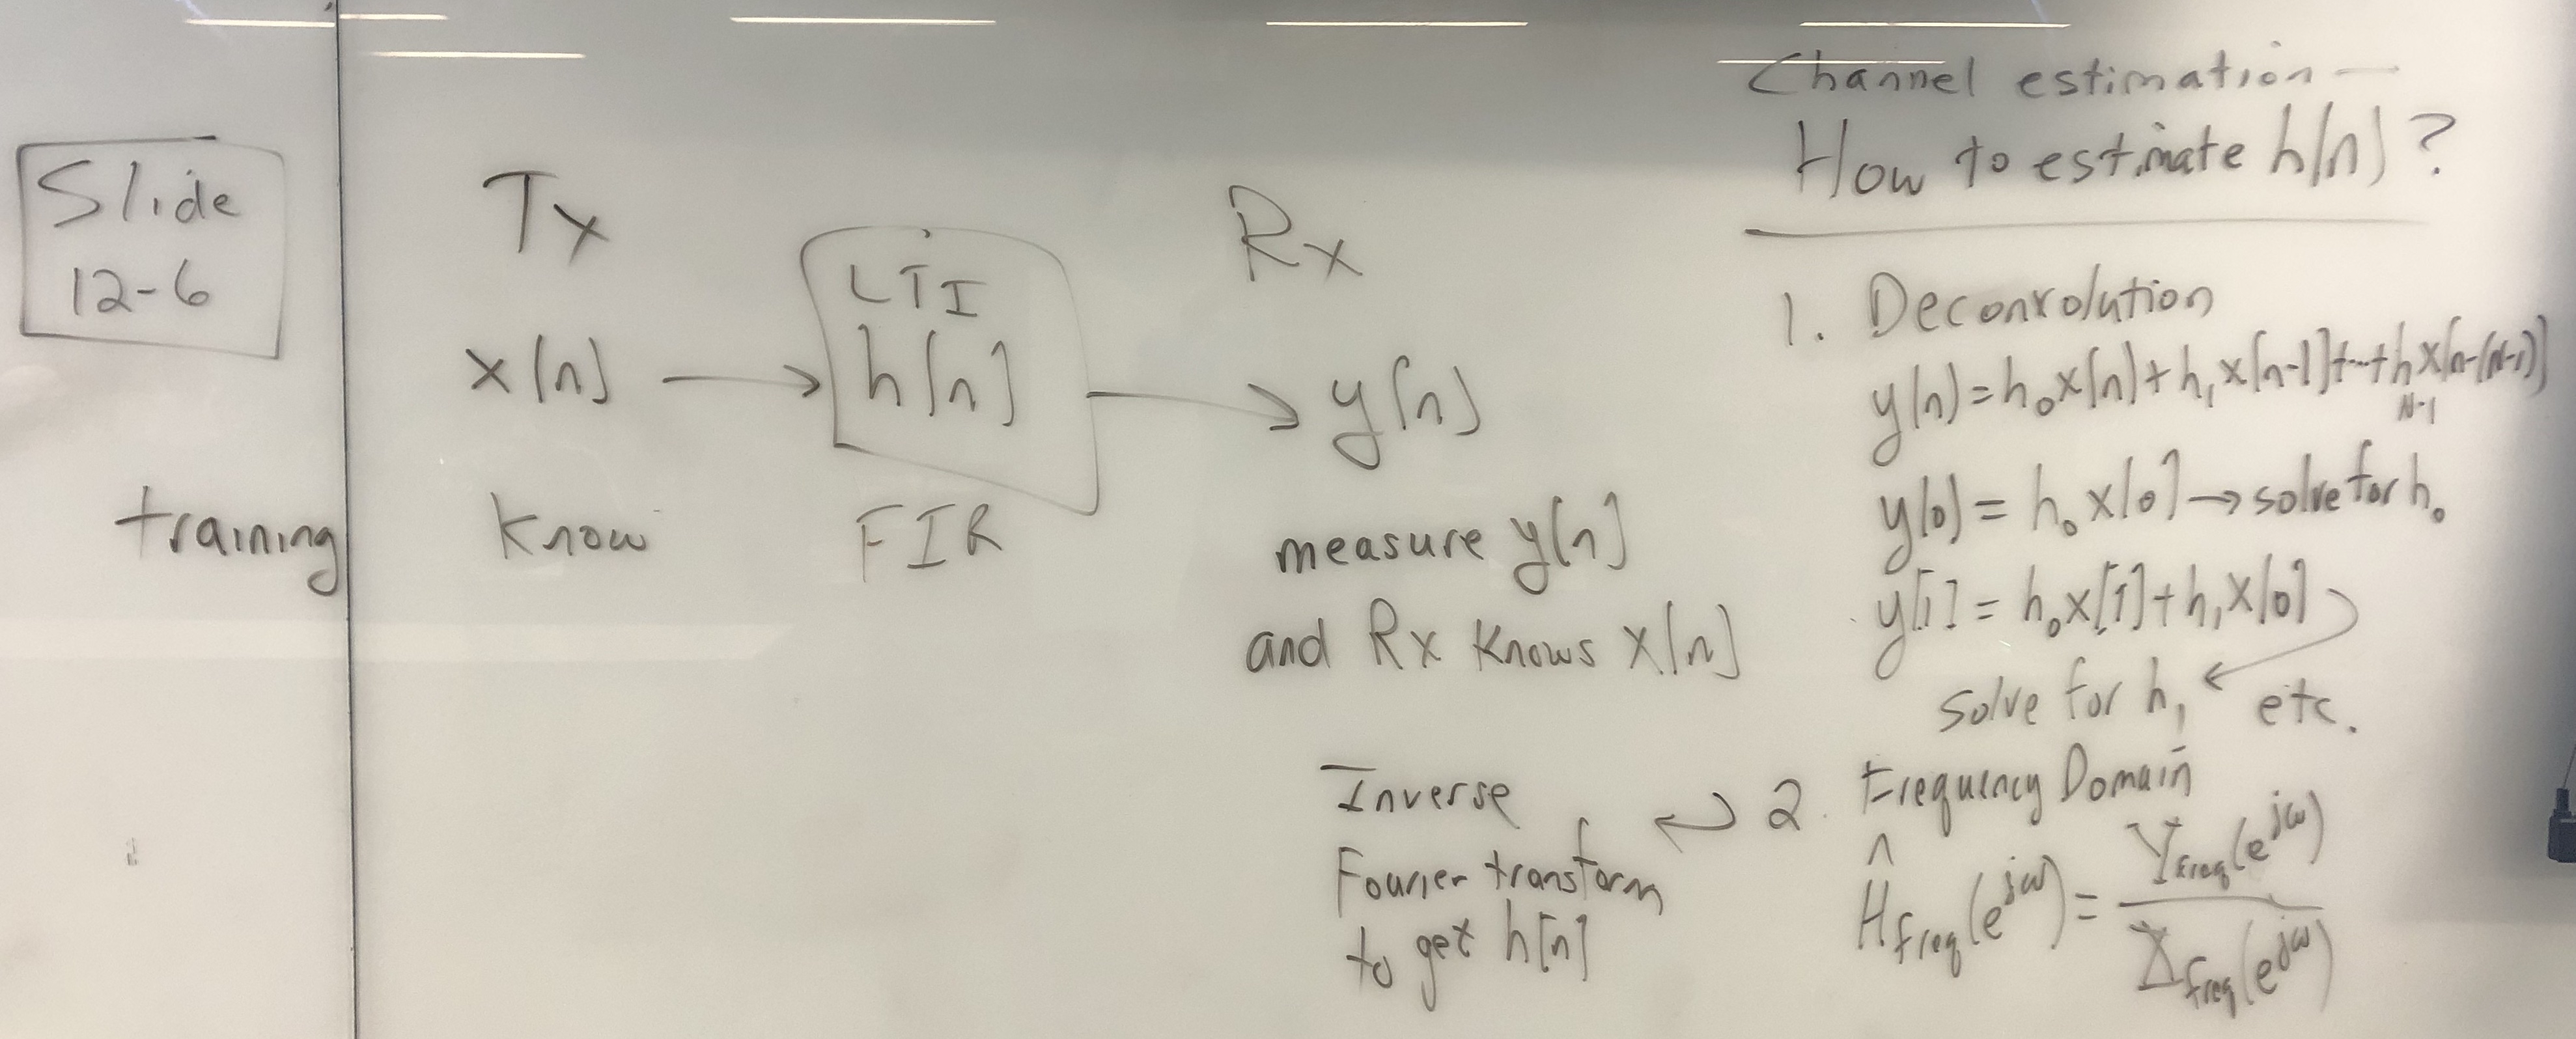 Slide
12-6
Tx
x[n]
LTI
h[n]
Rx
y[n]
training
Know
FIR
measure y[n]
and Rx knows x[n]
Channel estimation—
How to estimate h[n]?
1. Deconvolution
y[n] = h₀x[n] + h₁x[n-1] + ... + h_{N-1}x[n-(N-1)]
y[0] = h₀x[0] → solve for h₀
y[1] = h₀x[1] + h₁x[0]
solve for h₁ ← etc.
2. Frequency Domain
Ĥ_freq(e^{jω}) = Y_freq(e^{jω}) / X_freq(e^{jω})
Inverse
Fourier transform
to get h[n]